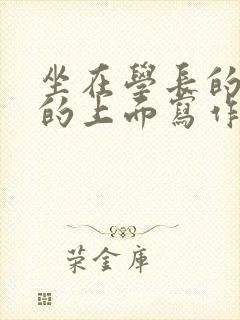 坐在學長的
的上面寫作
荣金庫